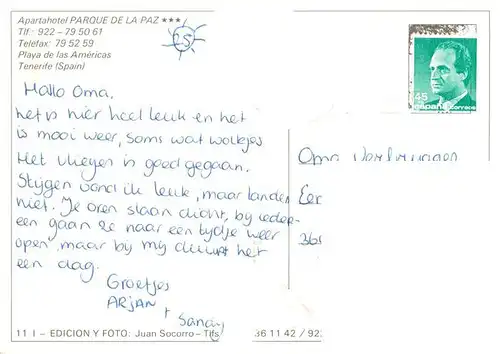 Apartahotel PARQUE DE LA PAZ ★★★
Tlf.: 922 – 79 50 61
Telefax: 79 52 59
Playa de las Américas
Tenerife (Spain)
25
45
España
correos
Hallo Oma,
het is hier heel leuk en het
is mooi weer, soms wat wolkjes
Het vliegen is goed gegaan.
Stijgen vond ik leuk, maar landen
niet. Je oren slaan dicht, bij ieder-
een gaan ze naar een tijdje weer
open, maar bij mij duurt het
een dag.
Groetjes
ARJAN
+
Sandy
Oma
Eer
36
11 I – EDICION Y FOTO: Juan Socorro – Tlfs
36 11 42 / 922